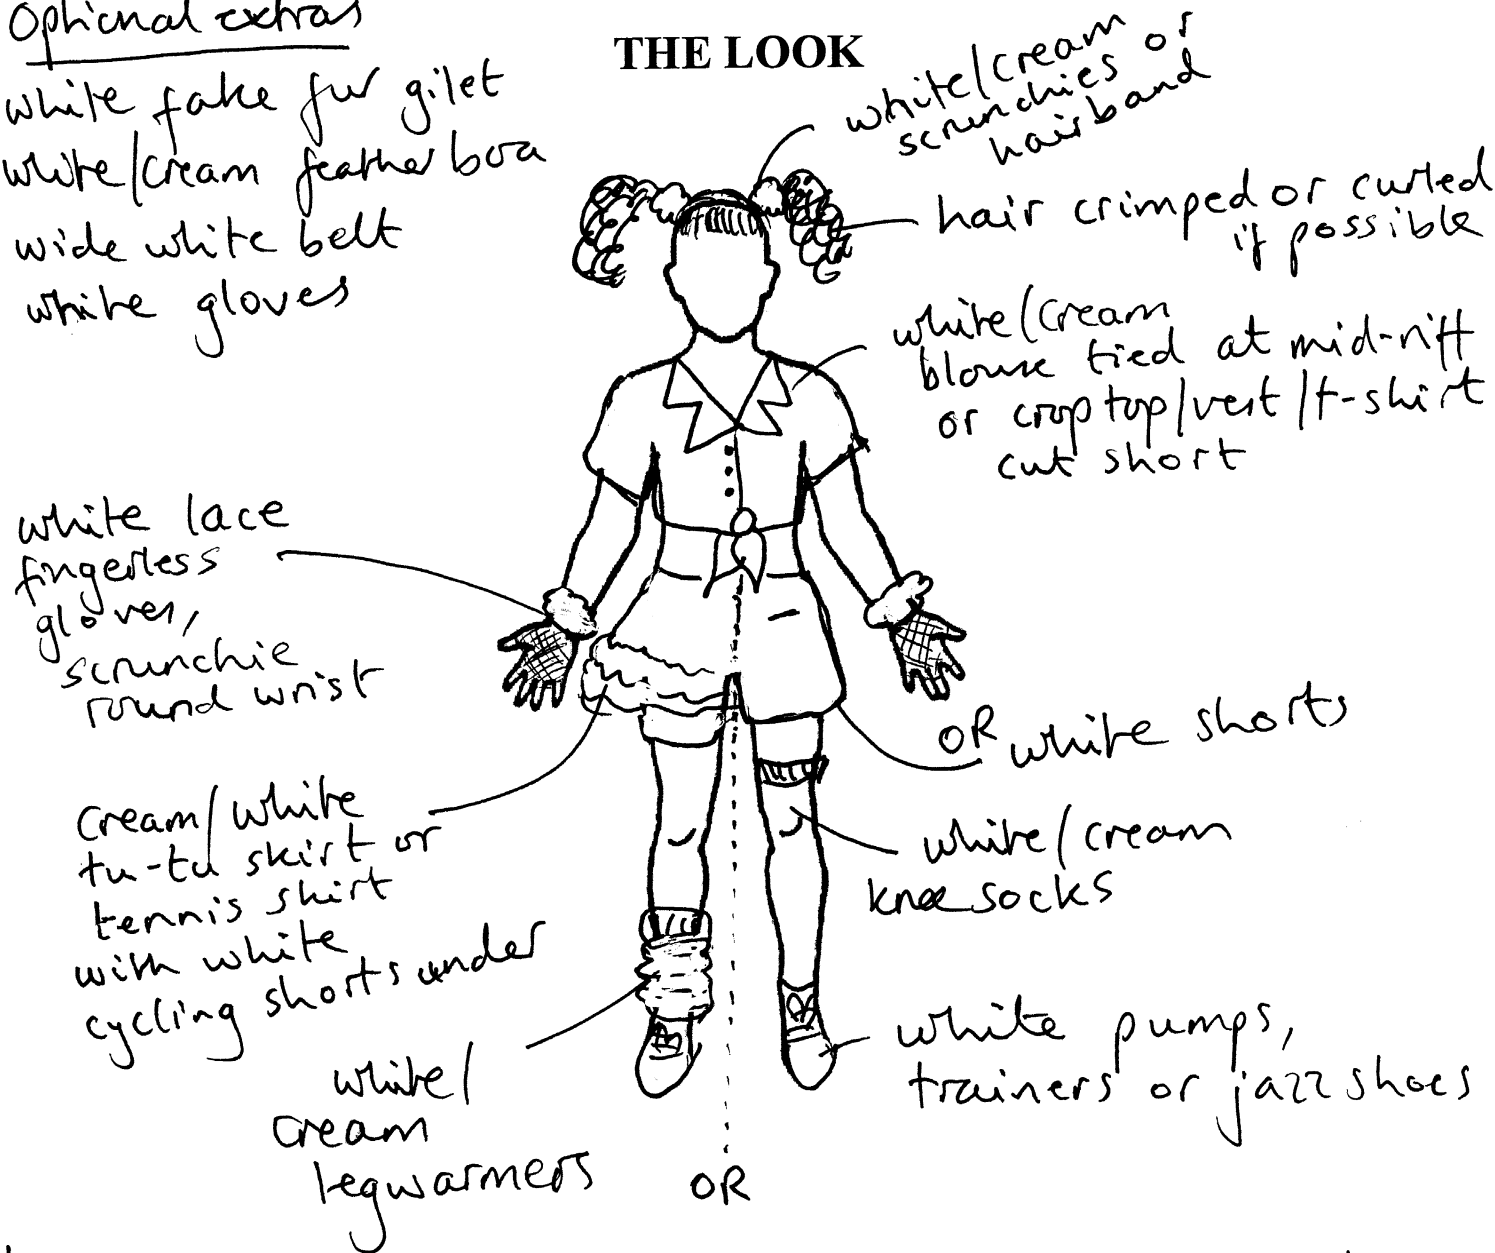 Optional extras
white fake fur gilet
white/cream feather boa
wide white belt
white gloves
THE LOOK
white/cream
scrunchies or
hairband
hair crimped or curled
if possible
white/cream
blouse tied at mid-riff
or crop top/vest/t-shirt
cut short
white lace
fingerless
gloves,
scrunchie
round wrist
OR white shorts
cream/white
tu-tu skirt or
tennis skirt
with white
cycling shorts under
white/cream
knee socks
white pumps,
trainers or jazz shoes
white/
cream
legwarmers
OR